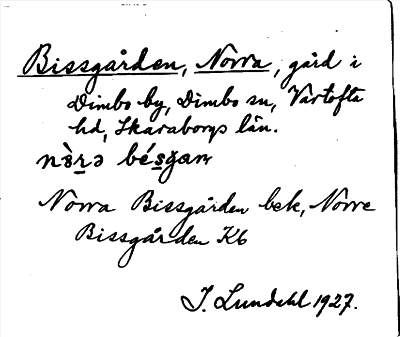 Bissgården, Norra, gård i
Dimbo by, Dimbo sn, Vartofta
hd, Skaraborgs län.
Norra Bissgården bek, Norre
Bissgården Kb
J. Lundahl 1927.